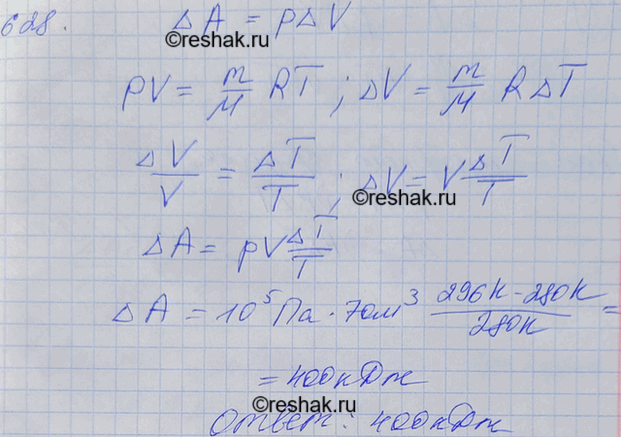 628. ΔA = pΔV
©reshak.ru
pV = m/M RT ; ΔV = m/M R ΔT
ΔV/V = ΔT/T ; ΔV = V ΔT/T
©reshak.ru
ΔA = pV ΔT/T
ΔA = 10⁵ Па · 70м³ (296К - 280К)/280К =
= 400кДж
©reshak.ru
Ответ: 400кДж